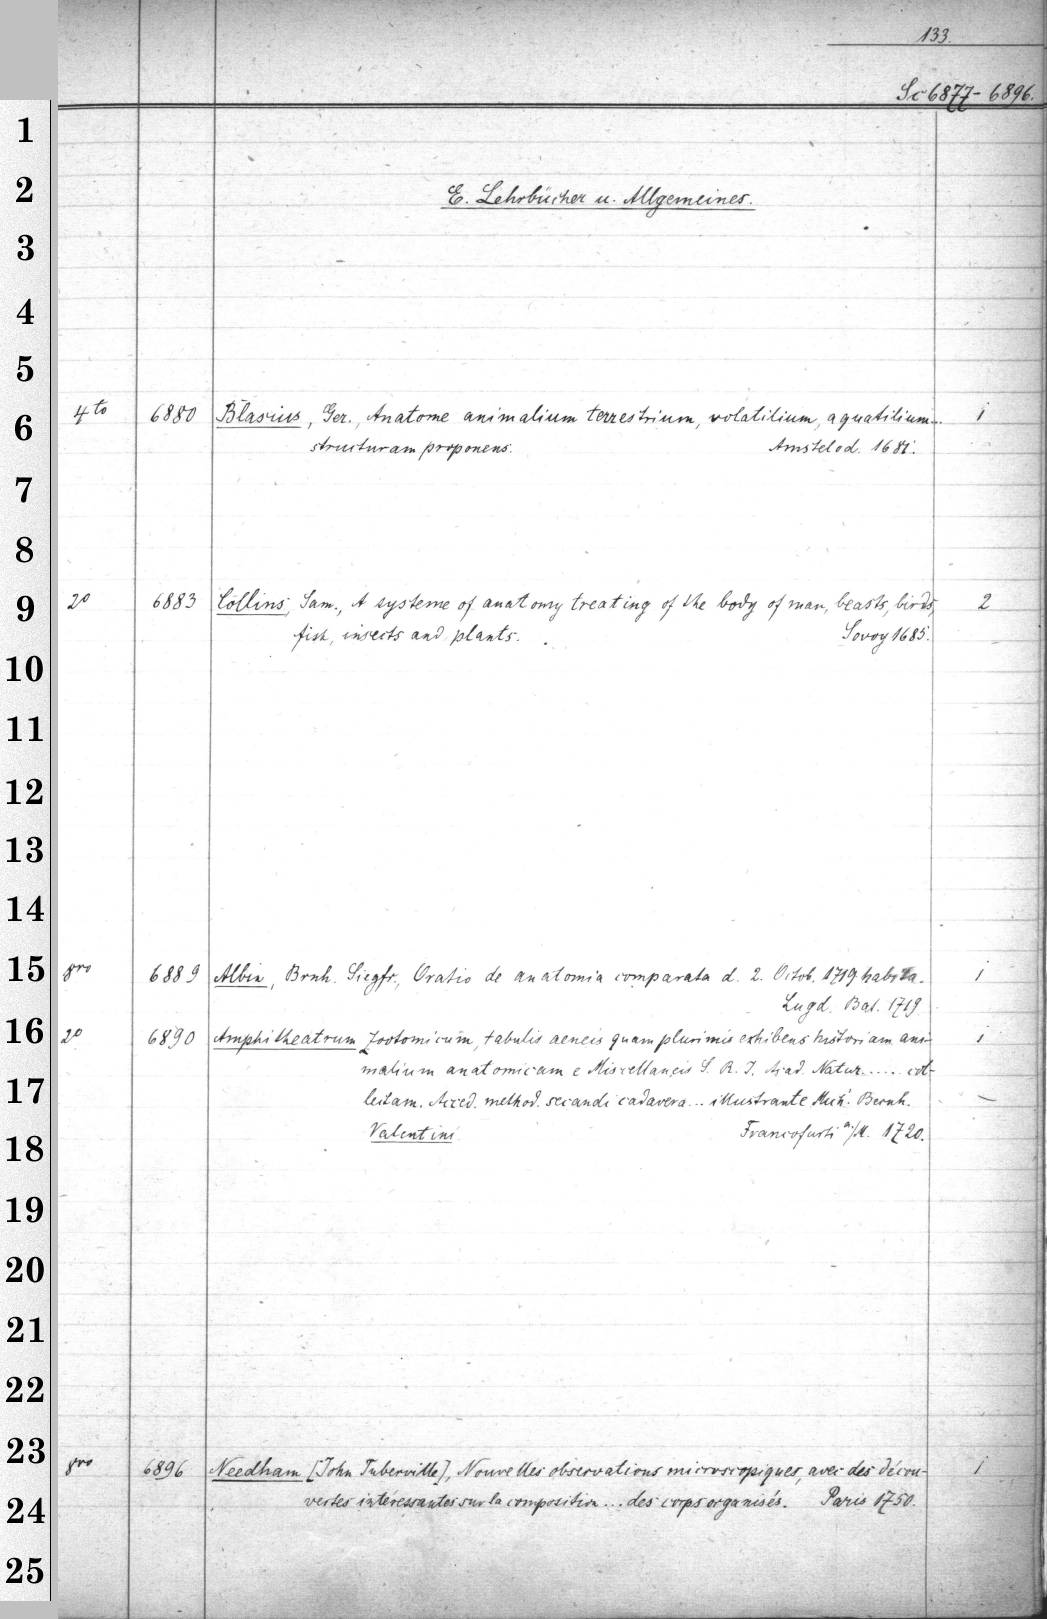 133.
Sc 6877-6896.
1
2
E. Lehrbücher u. Allgemeines.
3
4
5
6
4to 6880 Blasius, Ger., Anatome animalium terrestrium, volatilium, aquatilium... 1
structuram proponens. Amstelod. 1681.
7
8
9
2o 6883 Collins, Sam., A systeme of anatomy treating of the body of man, beasts, birds, 2
fish, insects and plants. Sovoy 1685.
10
11
12
13
14
15
8vo 6889 Albin, Brnh. Siegfr., Oratio de anatomia comparata d. 2. Octob. 1719 habita. 1
Lugd. Bat. 1719
16
2o 6890 Amphitheatrum zootomicum, tabulis aeneis quam plurimis exhibens historiam ani- 1
malium anatomicam e Miscellaneis S. R. I. Acad. Natur...... col-
17
lectam. Acced. method. secandi cadavera... illustrante Mich. Bernh.
18
Valentini Francofurti a/M. 1720.
19
20
21
22
23
8vo 6896 Needham [John Tuberville], Nouvelles observations microscopiques, avec des décou- 1
vertes intéressantes sur la composition... des corps organisés. Paris 1750.
24
25